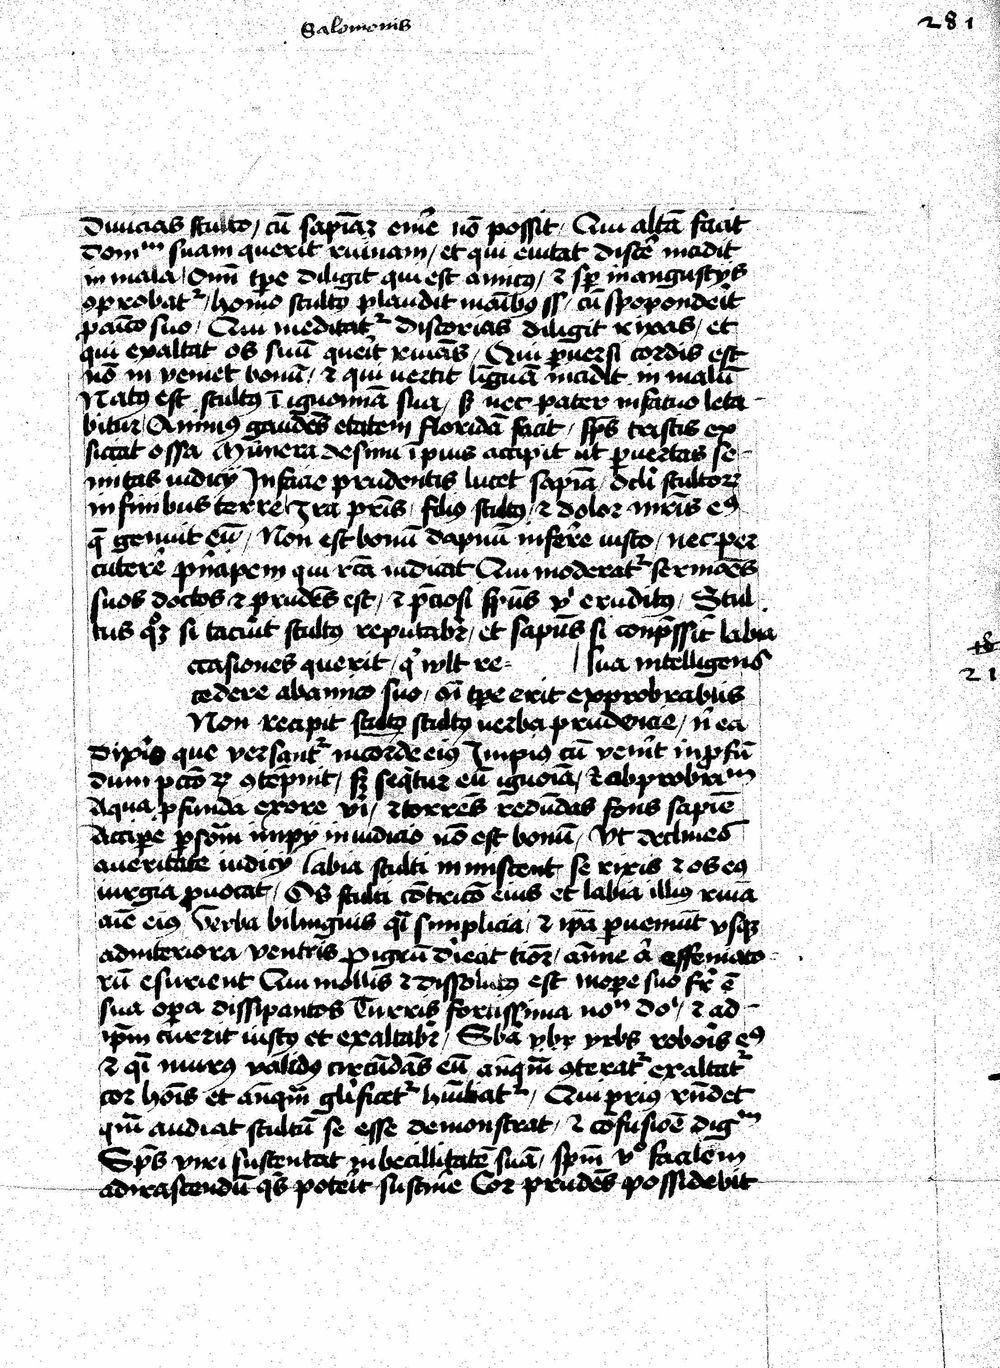 Salomonis
281
Diuicias stulto / cũ sapiãꝫ emͤe nõ possit / Qui altã facit
domᵐ suam querit ruinam / et qui euitat discẽ incidit
in mala / Omĩ tpe diligit qui est amicꝰ / ⁊ fr̃ in angustijs
oprobatᷣ / homo stultꝰ plaudit manibꝰ ss / cũ spopondeit
p amico suo / Qui meditatᷣ discorias diligit rixas / et
qui exaltat os suũ queit ruinãs / Qui puersi cordis est
nõ in veniet bonũ / ⁊ qui uertit linguã incidit in malũ
Natꝰ est stultꝰ ĩ ignominiã sua / sꝫ nec pater in fatuo leta-
bitur / Animꝰ gaudẽs etatem floridã facit / sps tristis ex
siccat ossa Munera de sinu ĩpius accipit ut puertas se-
mitas iudicij In facie prudentis lucet sapia / oculi stultoꝝ
in finibus terre Ira pris / filiꝰ stultꝰ / ⁊ dolor mris eꝰ
q̃ genuit eũ / Non est bonũ dapnũ inferͤe iusto / nec per
cuterͤe principem qui rcã iudicat Qui moderatᷣ sermões
suos doctos ⁊ prudẽs est / ⁊ p̃ciosi sps vͥ eruditꝰ / Stul
tus qꝫ si tacuit stultꝰ reputabᷣ / et sapiẽs si conp̃ssit labia
ccasiones querit / qͥ wlt re= | sua intelligens
cedere ab amico suo / oĩ tpe erit exprobrabilis
21
Non recipit stultꝰ stultꝰ uerba prudencie / nͥ ea
dixͥis que versantᷣ in corde eiꝰ Impiꝰ cũ venͥit in pfũ
dum pctõꝝ ꝯtẽpnit / sꝫ seq̃tur eũ ignoĩa / ⁊ obprobriᵐ
Aqua pfunda ex ore vͥi / ⁊ torrẽs redũdas fons sapiẽ
Accipe psonã impij in iudicio nõ est bonũ / Vt declines
a ueritate iudicij labia stulti inmiscent se rixis ⁊ os eꝰ
iurgia puocat / Os stulti cõtricõ eius et labia illiꝰ ruiã
aĩe eiꝰ Verba bilinguis qͣi simplicia / ⁊ ipã pueniũt vsqꝫ
ad interiora ventris pigrũ dieicit tior / anͥme aͣ effemiato-
rũ esurient Qui mollis ⁊ dissolutꝰ est in ope suo fr̃ ẽ
sua opera dissipantos Turris fortissima noᵐ doͥ / ⁊ ad-
ipm currit iustꝰ et exaltabᷣ / Sbã ybꝫ vrbs roboris eꝰ
⁊ qͣi murꝰ validꝰ circũdãs eũ anq̃m ꝯteratᷣ exaltatᷣ
cor hõis et anq̃m glificetᷣ huĩliatᷣ / Qui priꝰ rñdet
quͣ audiat stultũ se esse demonstrat / ⁊ cõfusiõe digᵐ
Sps viri sustentat inbecillitatẽ suã / spm vͦ facilem
ad irascendũ qͥs poteit sustinͤe Cor prudẽs possidebit